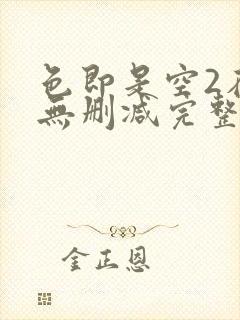 色即是空2在
無删减完整
金正恩